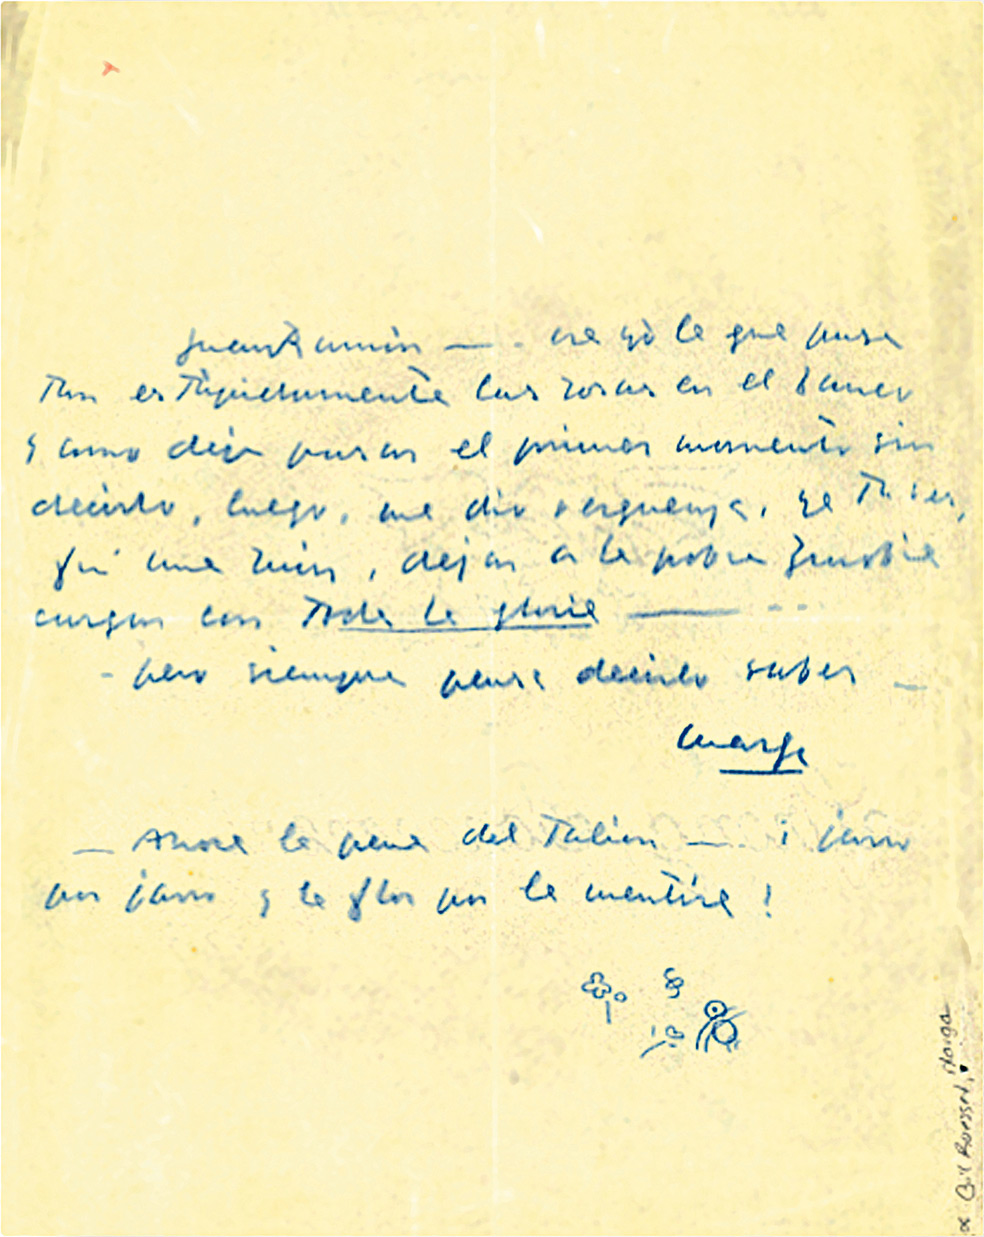 Juan Ramón —. me yo la que puse
tan estúpidamente las rosas en el banco
y como dejé pasar el primer momento sin
decirlo, luego, me dio vergüenza,
fui una ruin, dejar a la pobre Zenobia
cargar con toda la gloria —
- pero siempre pensé decirlo saber —
Marga
— Ahora la pena del Talión —. ¡jarro
por jarro y la flor por la mentira!
Gil Roësset, Marga